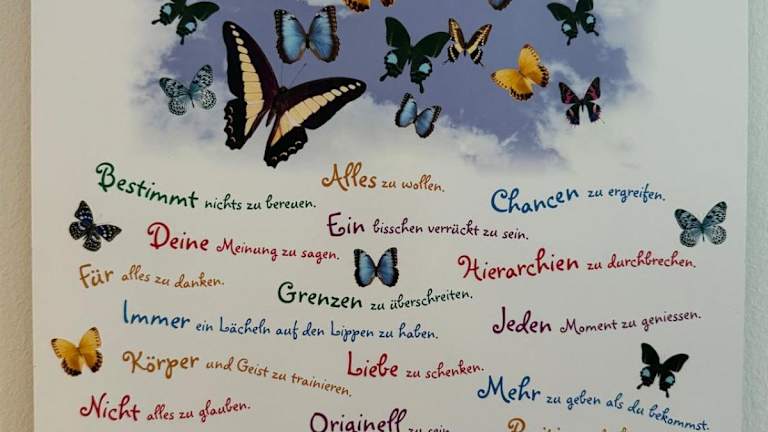 Alles zu wollen.
Bestimmt nichts zu bereuen.
Chancen zu ergreifen.
Deine Meinung zu sagen.
Ein bisschen verrückt zu sein.
Für alles zu danken.
Grenzen zu überschreiten.
Hierarchien zu durchbrechen.
Immer ein Lächeln auf den Lippen zu haben.
Jeden Moment zu geniessen.
Körper und Geist zu trainieren.
Liebe zu schenken.
Mehr zu geben als du bekommst.
Nicht alles zu glauben.
Originell zu sein